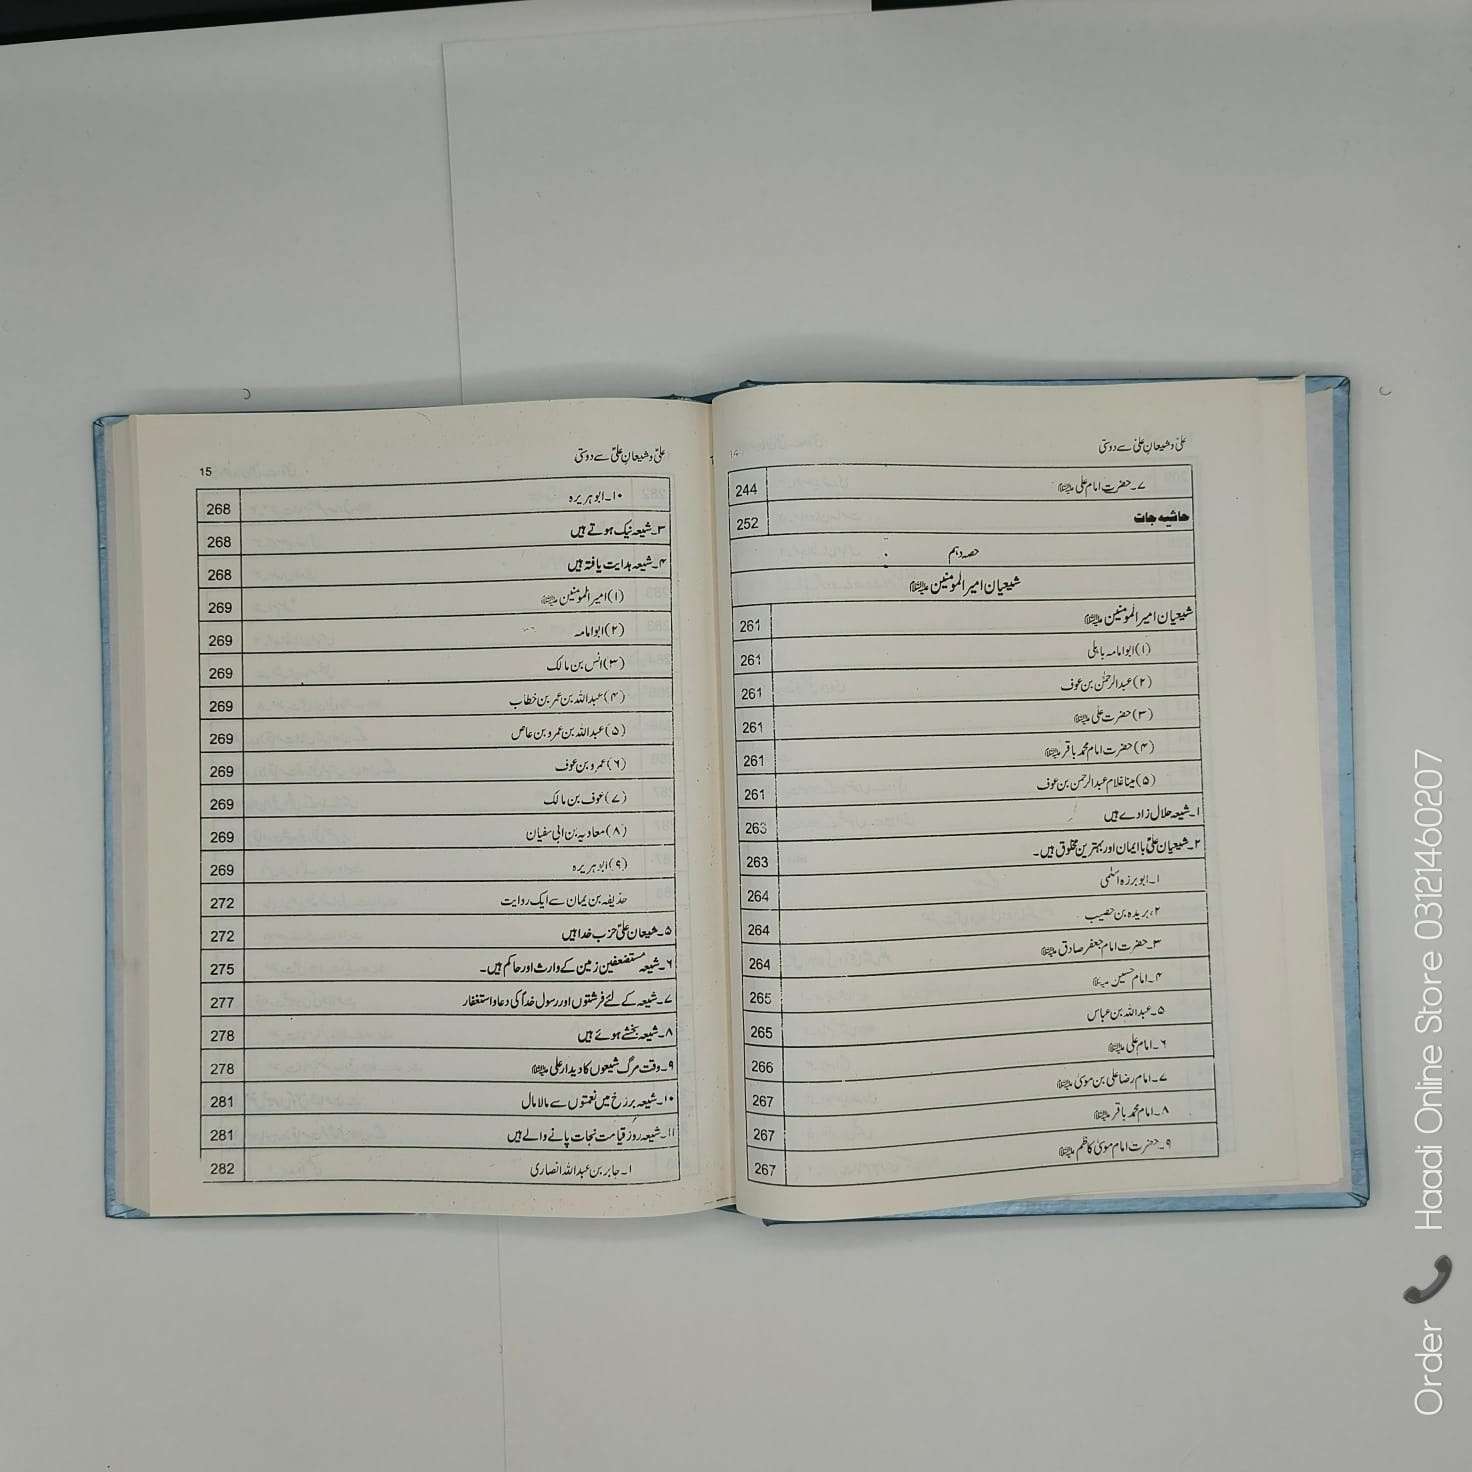 علیؑ و شیعانِ علیؑ سے دوستی
14
۷۔حضرت امام علی علیہ السلام 244
حاشیہ جات 252
حصہ دہم
شیعیان امیر المومنین علیہ السلام
شیعیان امیر المومنین علیہ السلام 261
(۱) ابوامامہ باہلی 261
(۲) عبدالرحمٰن بن عوف 261
(۳) حضرت علی علیہ السلام 261
(۴) حضرت امام محمد باقر علیہ السلام 261
(۵) مینا غلام عبدالرحمن بن عوف 261
۱۔شیعہ حلال زادے ہیں 263
۲۔شیعیان علیؑ با ایمان اور بہترین مخلوق ہیں۔ 263
۱۔ابو برزہ اسلمی 264
۲۔بریدہ بن حصیب 264
۳۔حضرت امام جعفر صادق علیہ السلام 264
۴۔امام حسین علیہ السلام 265
۵۔عبداللہ بن عباس 265
۶۔امام علی علیہ السلام 266
۷۔امام رضا علی بن موسیٰ علیہ السلام 267
۸۔امام محمد باقر علیہ السلام 267
۹۔حضرت امام موسیٰ کاظم علیہ السلام 267
علیؑ و شیعانِ علیؑ سے دوستی
15
۱۰۔ابو ہریرہ 268
۳۔شیعہ نیک ہوتے ہیں 268
۴۔شیعہ ہدایت یافتہ ہیں 268
(۱) امیر المومنین علیہ السلام 269
(۲) ابوامامہ 269
(۳) انس بن مالک 269
(۴) عبداللہ بن عمر بن خطاب 269
(۵) عبداللہ بن عمرو بن عاص 269
(۶) عمرو بن عوف 269
(۷) عوف بن مالک 269
(۸) معاویہ بن ابی سفیان 269
(۹) ابو ہریرہ 269
حذیفہ بن یمان سے ایک روایت 272
۵۔شیعان علیؑ حزب خدا ہیں 272
۶۔شیعہ مستضعفین زمین کے وارث اور حاکم ہیں۔ 275
۷۔شیعہ کے لئے فرشتوں اور رسول خداؐ کی دعا و استغفار 277
۸۔شیعہ بخشے ہوئے ہیں 278
۹۔وقت مرگ شیعوں کا دیدار علی علیہ السلام 278
۱۰۔شیعہ برزخ میں نعمتوں سے مالا مال 281
۱۱۔شیعہ روز قیامت نجات پانے والے ہیں 281
۱۔جابر بن عبداللہ انصاری 282
Order 📞 Haadi Online Store 03121460207